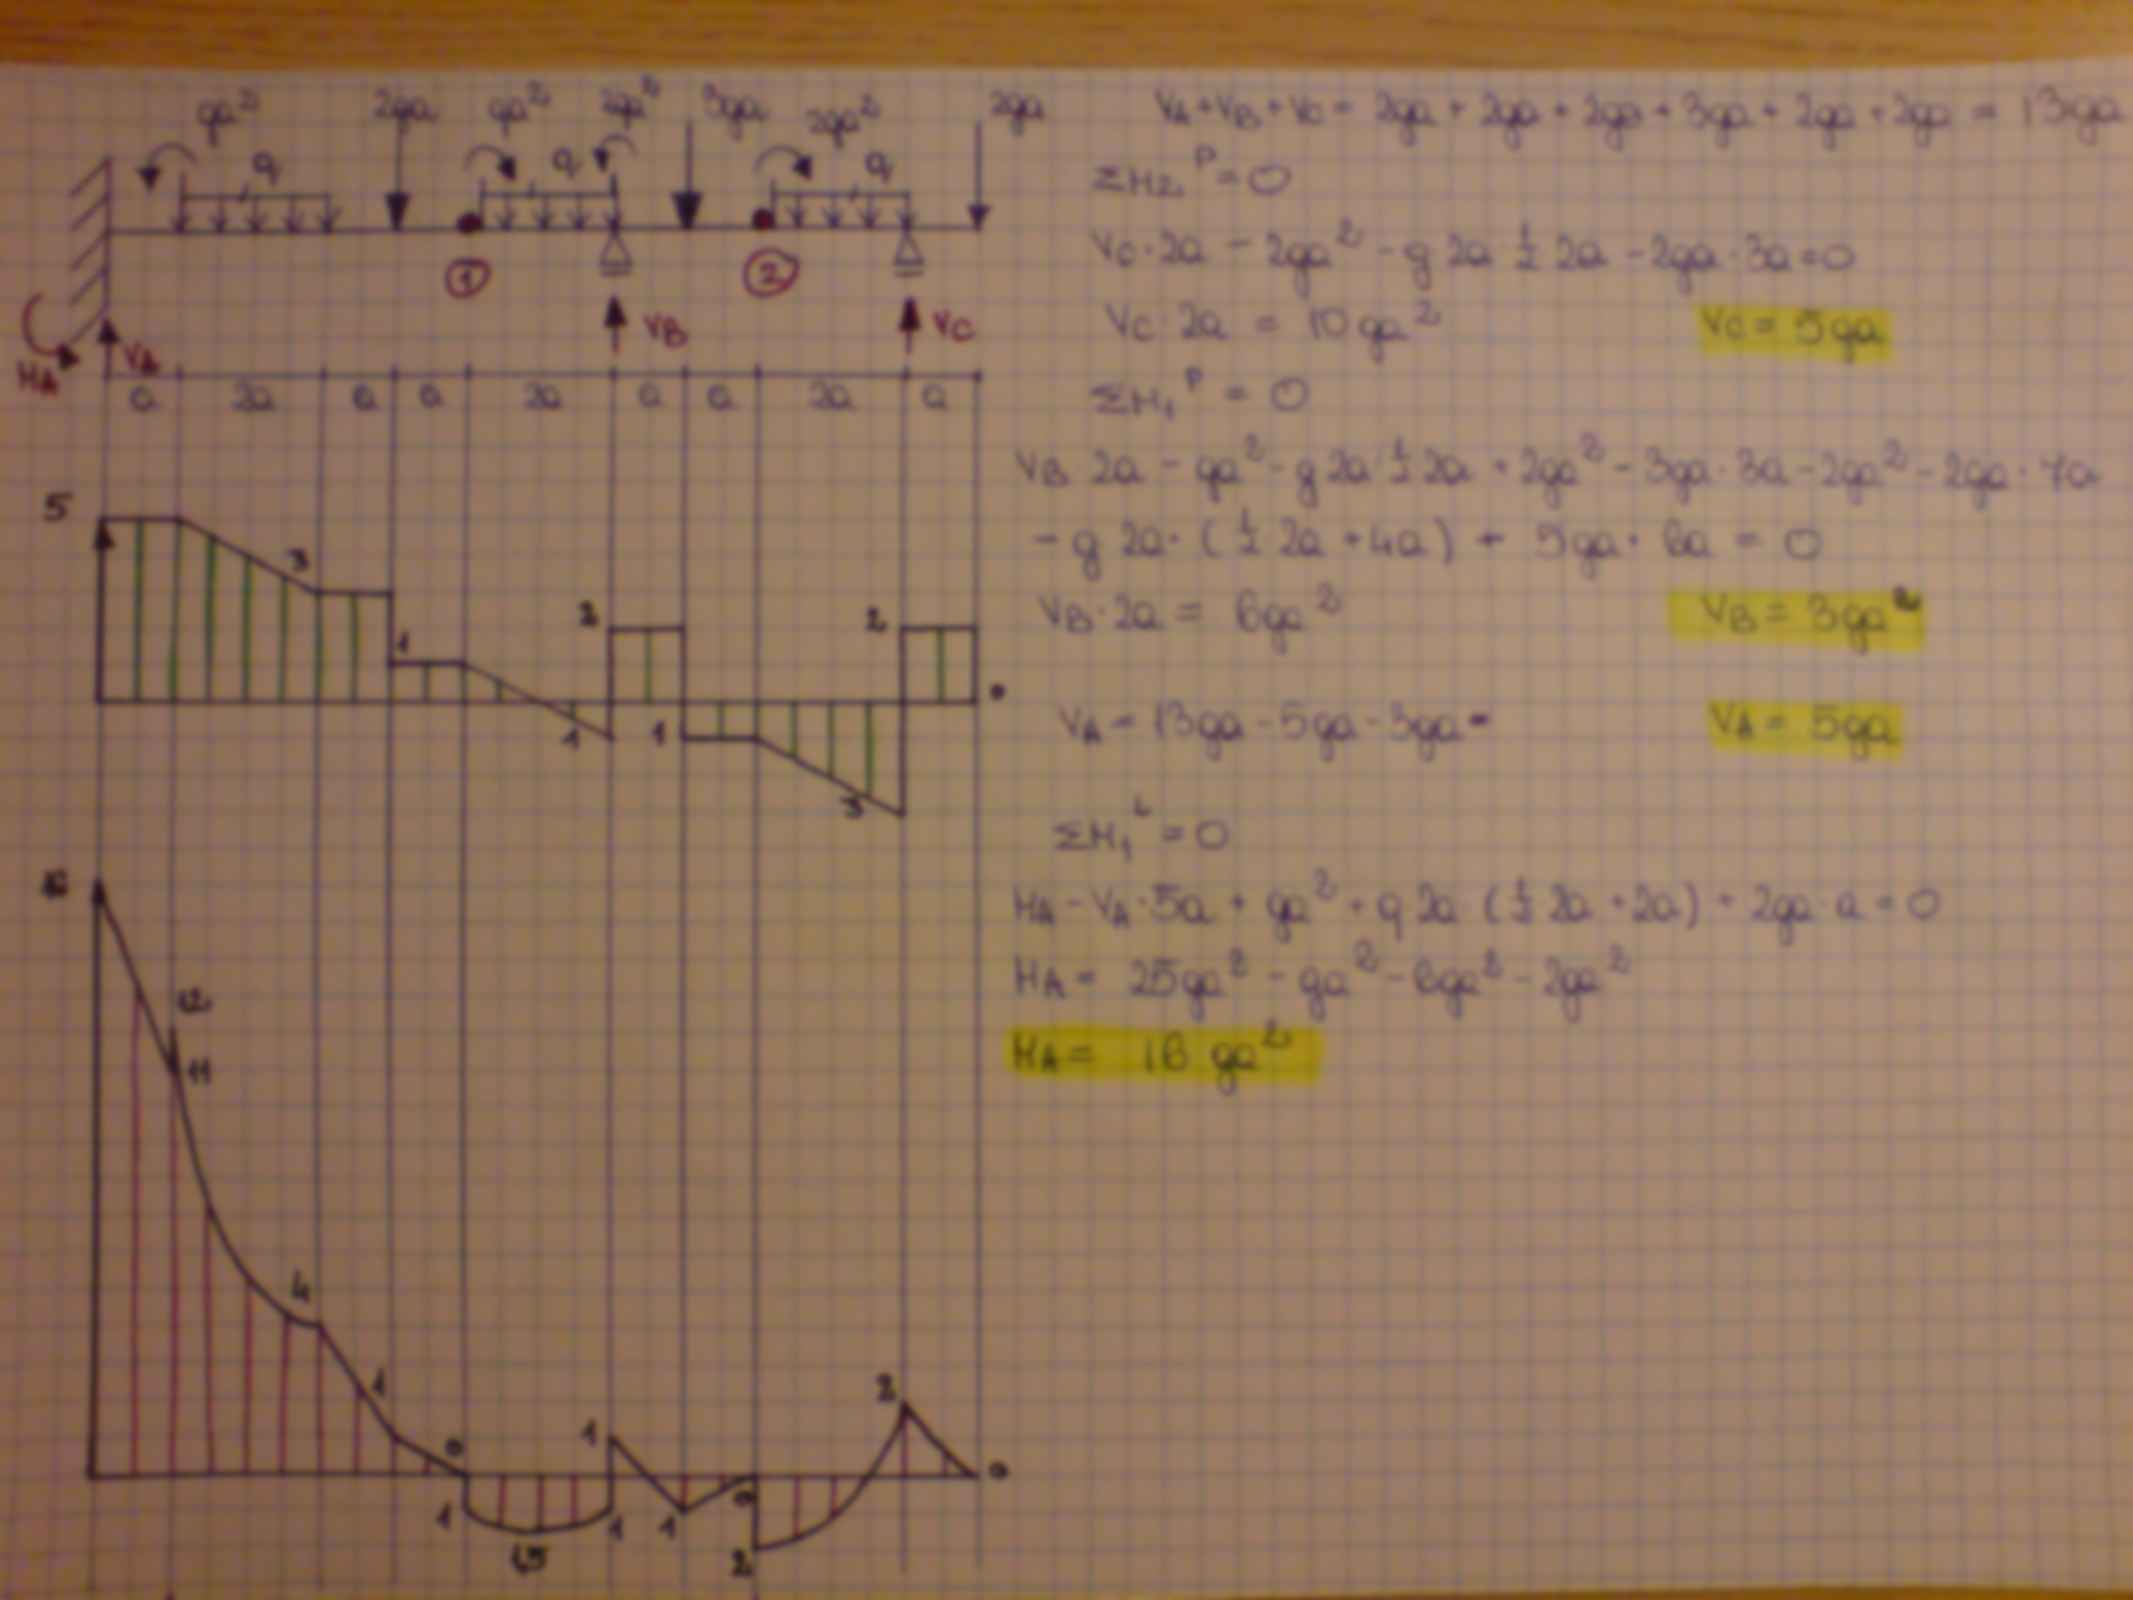 qa² 2qa qa² 2qa² 3qa 2qa² 2qa
q q q
① ②
VA VB VC
MA
a 2a a a 2a a a 2a a
5
3
1
2
1
1
2
3
0
16
12
11
4
1
0
1
1,5
1
1
1
0
2
2
0
VA + VB + VC = 2qa + 2qa + 2qa + 3qa + 2qa + 2qa = 13qa
ΣM2ᴾ = 0
VC·2a - 2qa² - q 2a ½ 2a - 2qa·3a = 0
VC 2a = 10qa² VC = 5qa
ΣM₁ᴾ = 0
VB 2a - qa² - q 2a ½ 2a + 2qa² - 3qa·3a - 2qa² - 2qa·7a
- q 2a·(½ 2a + 4a) + 5qa·6a = 0
VB·2a = 6qa² VB = 3qa
VA = 13qa - 5qa - 3qa = VA = 5qa
ΣM₁ᴸ = 0
MA - VA·5a + qa² + q 2a (½ 2a + 2a) + 2qa·a = 0
MA = 25qa² - qa² - 6qa² - 2qa²
MA = 16 qa²